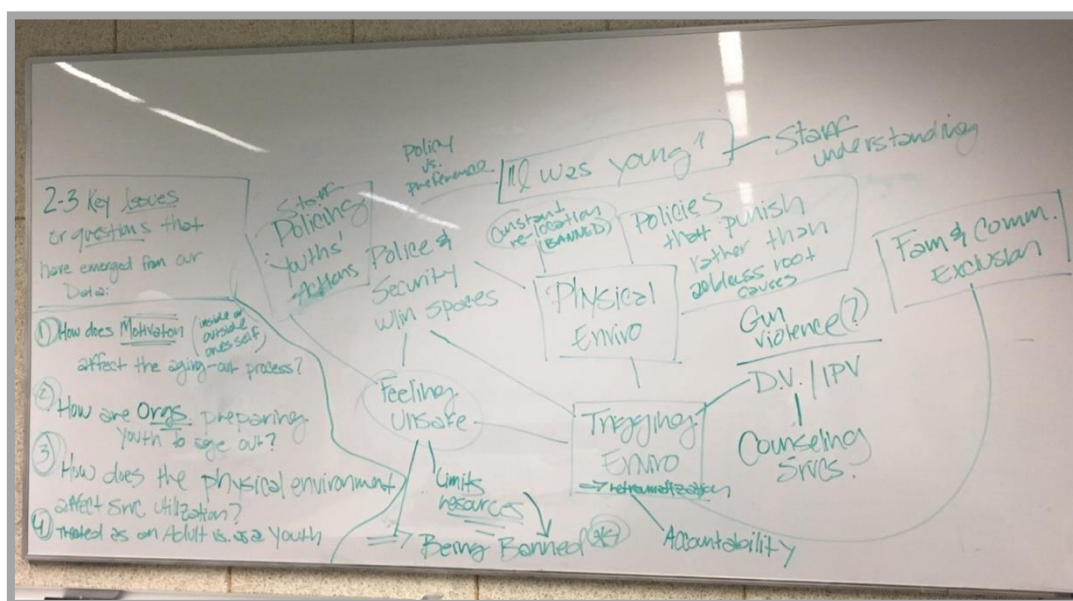 2-3 Key Issues
or questions that
have emerged from our
Data:
① How does Motivation (inside or
outside
ones self)
affect the aging-out process?
② How are Orgs. preparing
youth to age out?
③ How does the physical environment
affect Srvc utilization?
④ Treated as an Adult vs. as a Youth
Staff
Policing
Youths'
Actions
Policy
vs.
preference
"I was young"
Staff
understanding
Police &
Security
w/in spaces
Constant
re-location
(BANNED)
Policies
that punish
rather than
address root
causes
Physical
Enviro
Fam & Comm.
Exclusion
Gun
violence(?)
D.V. / IPV
Counseling
Srvcs.
Feeling
Unsafe
Trigging
Enviro
→ retraumatization
Limits
resources
⇒ Being Banned
Accountability